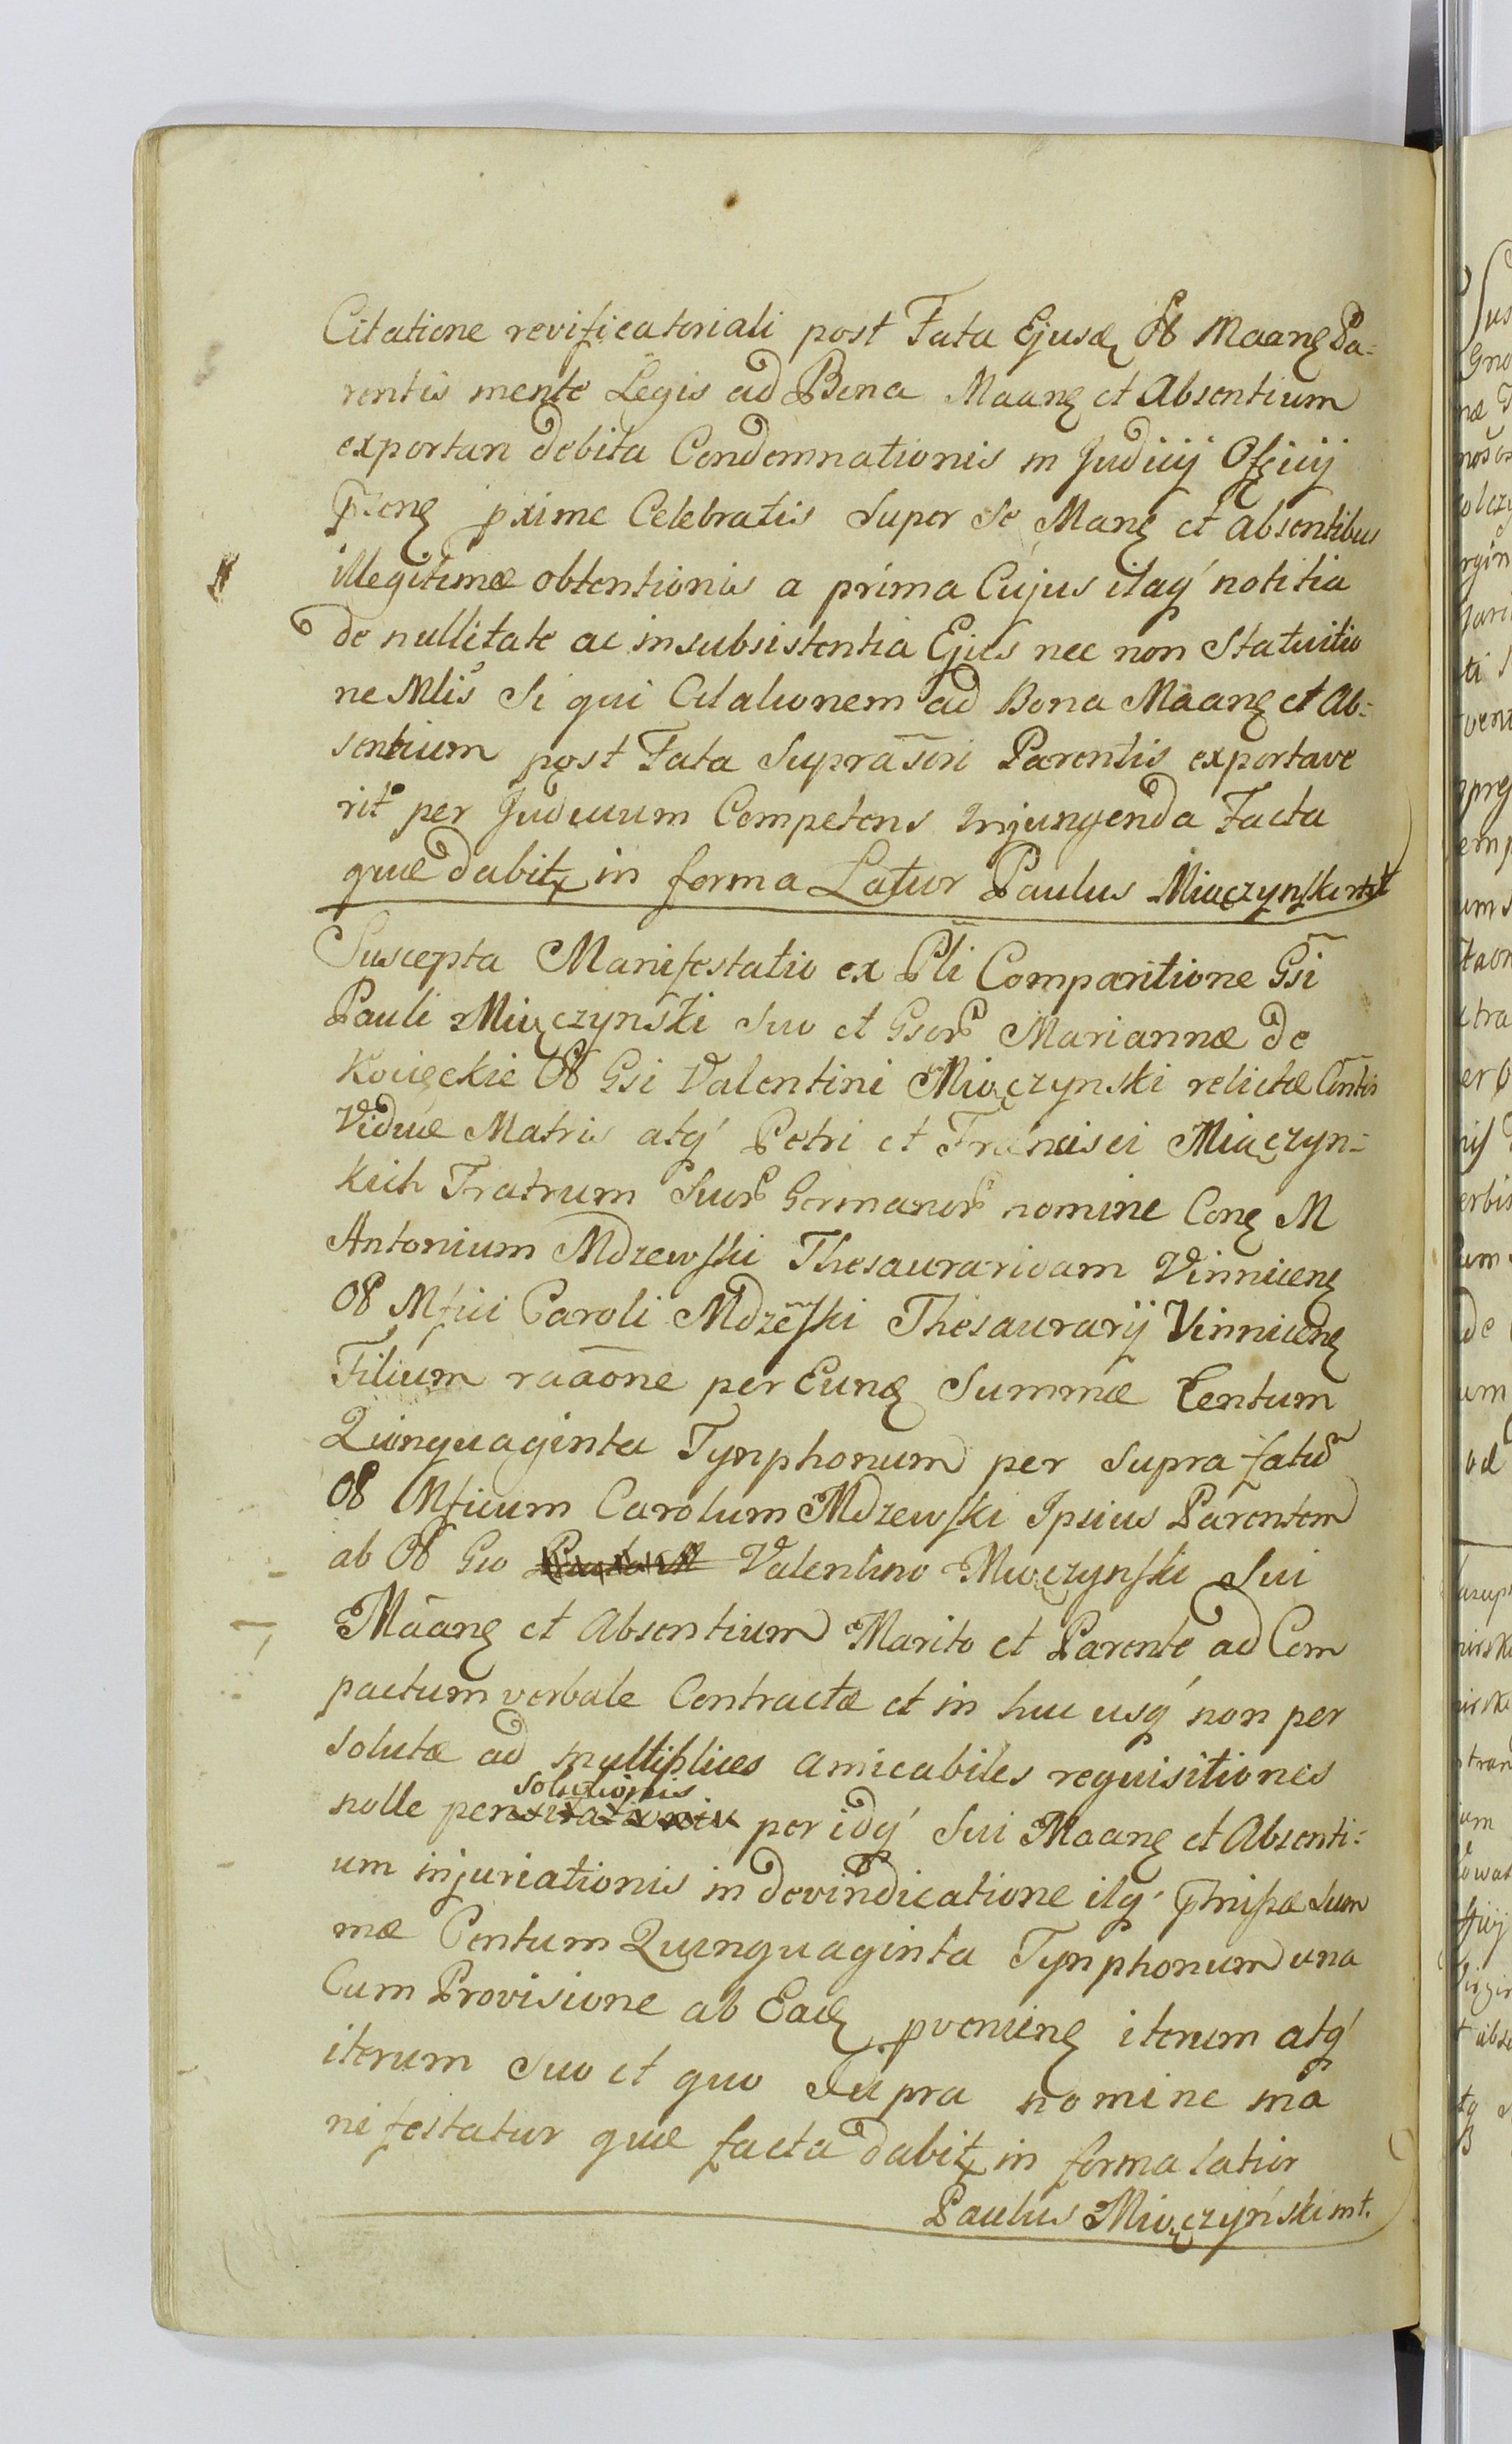 Citatione revificatoriali post Fata Ejusd Ol Maang Pa=
rentis mente Legis ad Bona Maang et Absentium
exportari debita Condemnationis in Judicij Officij
pseng pxime Celebratis super se Mang et absentibus
illegitimæ obtentionis a prima Cujus itaq notitia
de nullitate ac insubsistentia Ejus nec non Statuitio
ne Mlis Si qui Citationem ad Bona Maang et Ab=
sentium post Fata Supraseri Parentis exportave
rit per Judicium Competens injungenda Facta
quæ dabit in forma Latior Paulus Miączynski mt
Suscepta Manifestatio ex Pli Comparitione Gsi
Pauli Miączynski Suo et Gsor Mariannæ de
Kocięckie Ol Gsi Valentini Miączynski relictæ Contis
Viduæ Matris atq Petri et Francisci Miączyn=
kich Fratrum Suor Germanor nomine Cong M
Antonium Mdzewski Thesauraridam Vinniceng
Ol Mfici Caroli Mdzeski Thesaurarij Vinniceng
Filium raaone per Eung Summæ Centum
Quinquaginta Tynphonum per supra fatu
Ol Mficum Carolum Mdzewski Ipsius Parentem
ab Ol Gso Valentino Miączynski Sui
Maang et Absentium Marito et Parente ad Com
pactum verbale Contractæ et in huc usq non per
solutæ ad multiplices amicabiles requisitiones
solutionis
nolle per idq Sui Maang et Absenti=
um injuriationis in devindicatione itq pmissæ Sum
mæ Centum Quinquaginta Tynphonum una
Cum Provisione ab Eadg pvenieng iterum atq
iterum Suo et quo Supra nomine ma
nifestatur quæ facta dabit in forma latior
Paulus Miączyński mt.